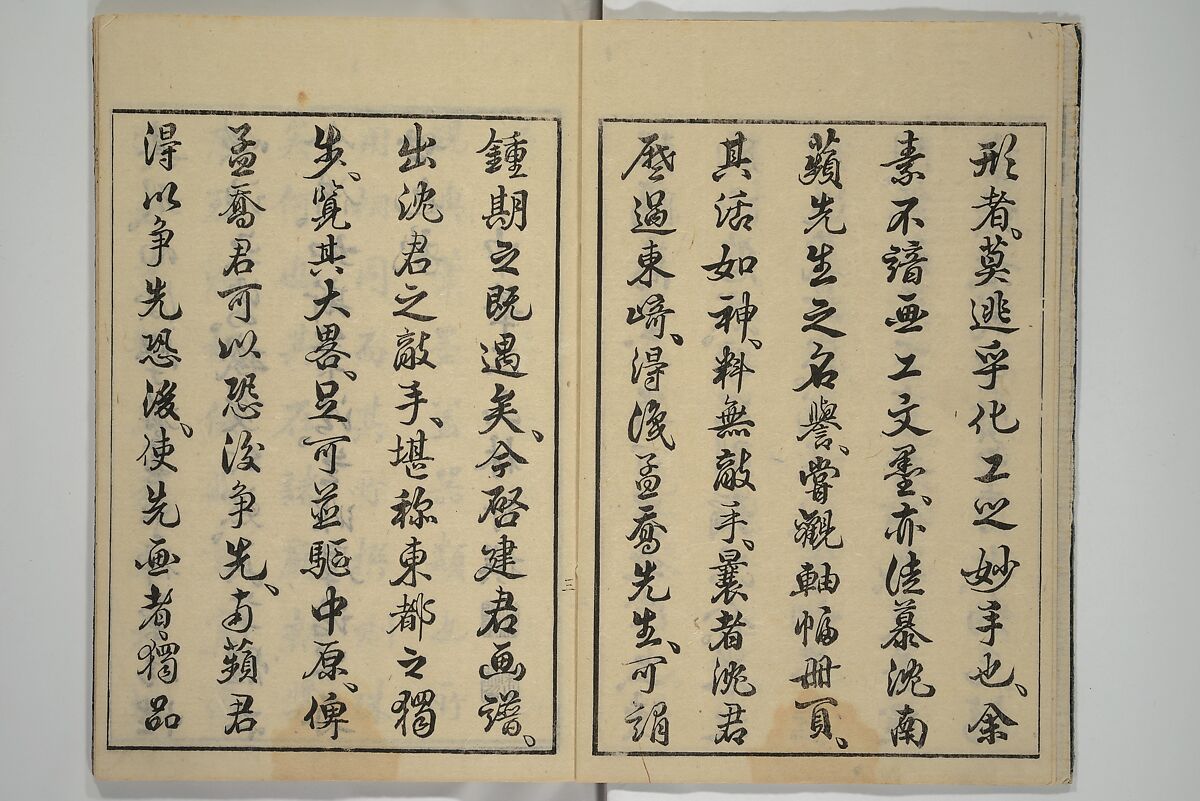 形者、莫逃乎化工之妙手也、余
素不諳画工文墨、亦徒慕沈南
蘋先生之名譽、嘗觀軸幅冊頁、
其活如神、料無敵手、曩者沈君
歴過東﨑、得淺孟喬先生、可謂
鍾期之既遇矣、今啓建君画譜、
出沈君之敵手、堪称東都之獨
步、覽其大畧、足可並驅中原、俾
孟喬君可以恐後争先、南蘋君
得以争先恐後、使先画者、獨品
三